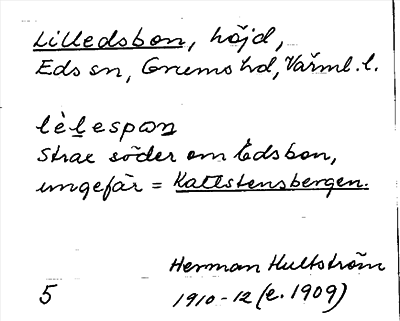 Lilledsbon, höjd,
Eds sn, Grums hd, Värml. l.
lèlespωn
Strax söder om Edsbon,
ungefär = Kattstensbergen.
Herman Hultström
5 1910-12 (e. 1909)